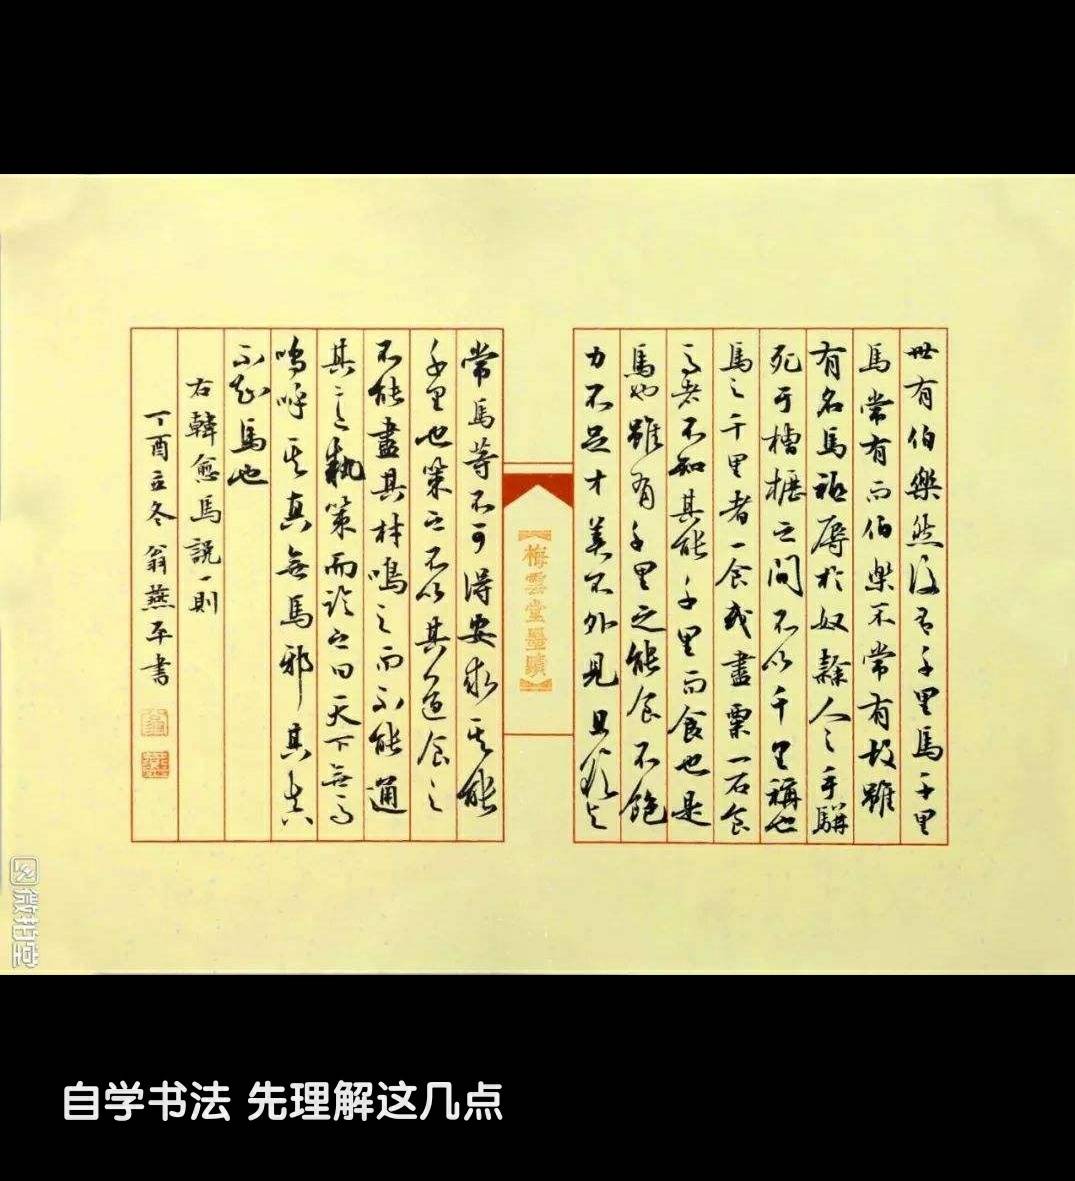 世有伯樂然後有千里馬千里
馬常有而伯樂不常有故雖
有名馬祗辱於奴隸人之手駢
死于槽櫪之間不以千里稱也
馬之千里者一食或盡粟一石食
馬者不知其能千里而食也是
馬也雖有千里之能食不飽
力不足才美不外見且欲與
【梅雲堂墨蹟】
常馬等不可得安求其能
千里也策之不以其道食之
不能盡其材鳴之而不能通
其意執策而臨之曰天下無馬
嗚呼其真無馬邪其真
不知馬也
右韓愈馬說一則
丁酉立冬翁燕平書
微拍堂
自学书法 先理解这几点